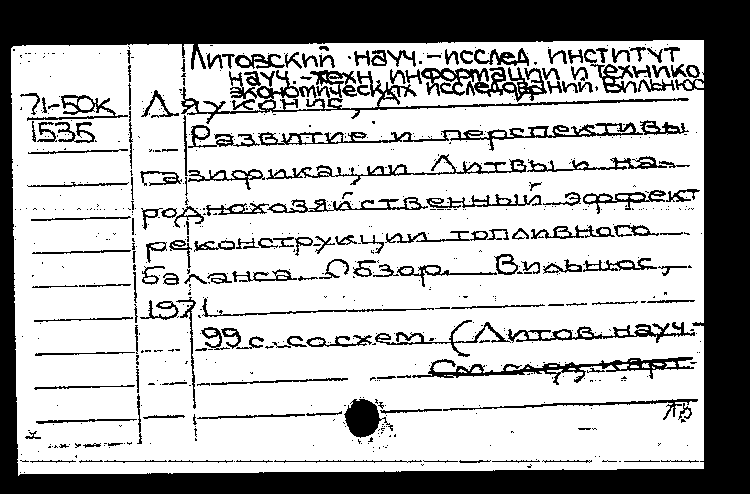 Литовский науч.-исслед. институт
науч.-техн. информации и технико-
экономических исследований. Вильнюс
71-50к Ляуконис, А
1535 Развитие и перспективы
газификации Литвы и на-
роднохозяйственный эффект
реконструкции топливного
баланса. Обзор. Вильнюс,
1971.
99 с. со схем. (Литов. науч.-
См. след. карт.